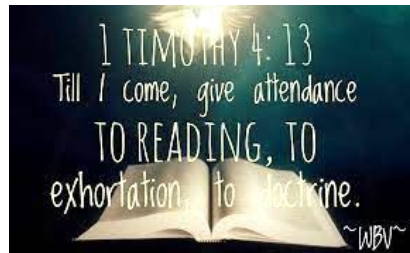 1 TIMOTHY 4: 13
Till I come, give attendance
TO READING, TO
exhortation, to doctrine.
~WBV~